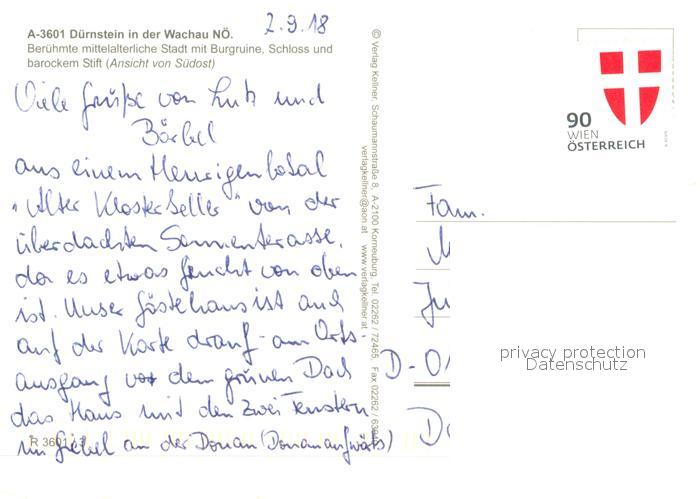 2.9.18
A-3601 Dürnstein in der Wachau NÖ.
Berühmte mittelalterliche Stadt mit Burgruine, Schloss und
barockem Stift (Ansicht von Südost)
Viele Grüße von Lutz und
Bärbel
aus einem Heurigenlokal
"Alter Klosterkeller" von der
überdachten Sonnenterasse,
da es etwas feucht von oben
ist. Unser Gästehaus ist auch
auf der Karte drauf - am Orts-
ausgang vor dem grünen Dach
das Haus mit den zwei Fenstern
im Giebel an der Donau (Donauaufwärts)
R 3601
© Verlag Kellner. Schaumannstraße 8, A-2100 Korneuburg, Tel. 02262 / 72465, Fax 02262 /
verlagkellner@aon.at www.verlagkellner.at
90
WIEN
ÖSTERREICH
Fam.
D-01
privacy protection
Datenschutz